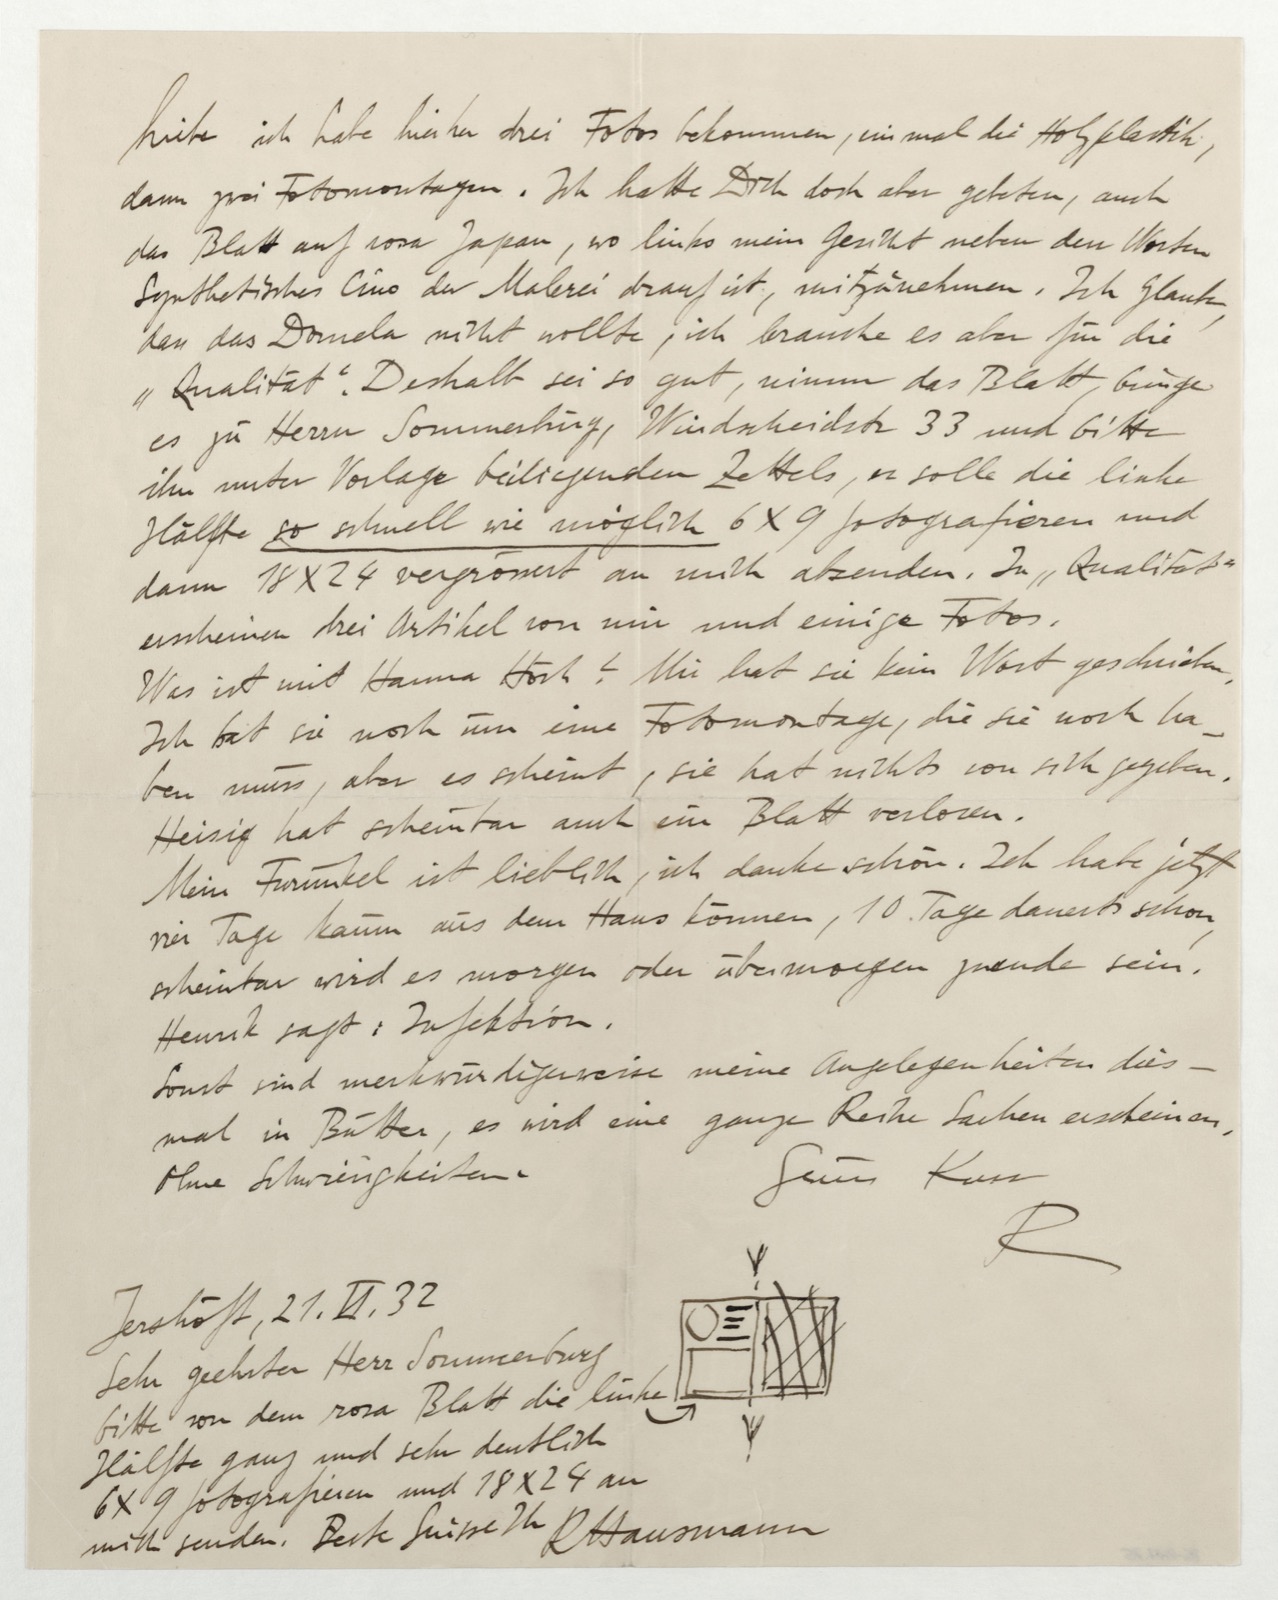 Liebe ich habe hierher drei Fotos bekommen, einmal die Holzplastik,
dann zwei Fotomontagen. Ich hatte Dich doch aber gebeten, auch
das Blatt auf rosa Japan, wo links mein Gesicht neben den Worten
Synthetisches Cino der Malerei drauf ist, mitzunehmen. Ich glaube,
dass das Domela nicht wollte, ich brauche es aber für die
„Qualität“. Deshalb sei so gut, nimm das Blatt, bringe
es zu Herrn Sommerburg, Windscheidstr 33 und bitte
ihn unter Vorlage beiliegenden Zettels, er solle die linke
Hälfte so schnell wie möglich 6X9 fotografieren und
dann 18X24 vergrössert an mich absenden. In „Qualität“
erscheinen drei Artikel von mir und einige Fotos.
Was ist mit Hanna Höch? Mir hat sie kein Wort geschrieben.
Ich bat sie noch um eine Fotomontage, die sie noch ha-
ben muss, aber es scheint, sie hat nichts von sich gegeben.
Heisig hat scheinbar auch ein Blatt verloren.
Mein Furunkel ist lieblich, ich danke schön. Ich habe jetzt
vier Tage kaum aus dem Haus können, 10 Tage dauerts schon,
scheinbar wird es morgen oder übermorgen zuende sein.
Henrik sagt: Infektion.
Sonst sind merkwürdigerweise meine Angelegenheiten dies-
mal in Butter, es wird eine ganze Reihe Sachen erscheinen,
ohne Schwierigkeiten.
Gruss Kuss
R
Jershöft, 21. VI. 32
Sehr geehrter Herr Sommerburg
bitte von dem rosa Blatt die linke
Hälfte ganz und sehr deutlich
6X9 fotografieren und 18X24 an
mich senden. Beste Grüsse Ihr RHausmann